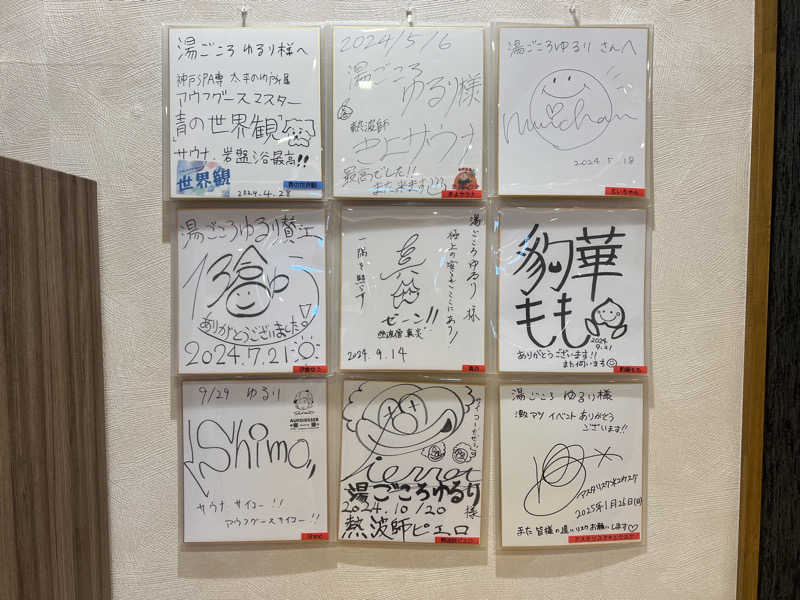 湯ごころ ゆるり様へ
神戸SPA専 太平のゆ所属
アウフグースマスター
青の世界観
サウナ、岩盤浴最高!!
世界観
2024.4.28
青の世界観
2024/5/6
湯ごころ
ゆるり様
熱波師
きよサウナ
最高でした!!
また来ます
きよサウナ
湯ごころゆるり さんへ
Muichan
2024 5.18
むいちゃん
湯ごころゆるり
ありがとうございました。
2024.7.21
湯ごころゆるり 様
極上の宴をここにあり!
真
一隅を照らす
ぜーン!!
2024.9.14
豹華
もも
2024
9.21
ありがとうございます!!
また伺います
豹華もも
9/29 ゆるり
AUFGIESSER
Shimo
サウナ サイコー!!
アウフグースサイコー!!
Pierrot
湯ごころゆるり
様
2024.10/20
熱波師ピエロ
熱波師ピエロ
湯ごころ ゆるり様
激アツ イベントありがとう
ございます!!
2025年1月26日(日)
また 皆様の
お願いします♡